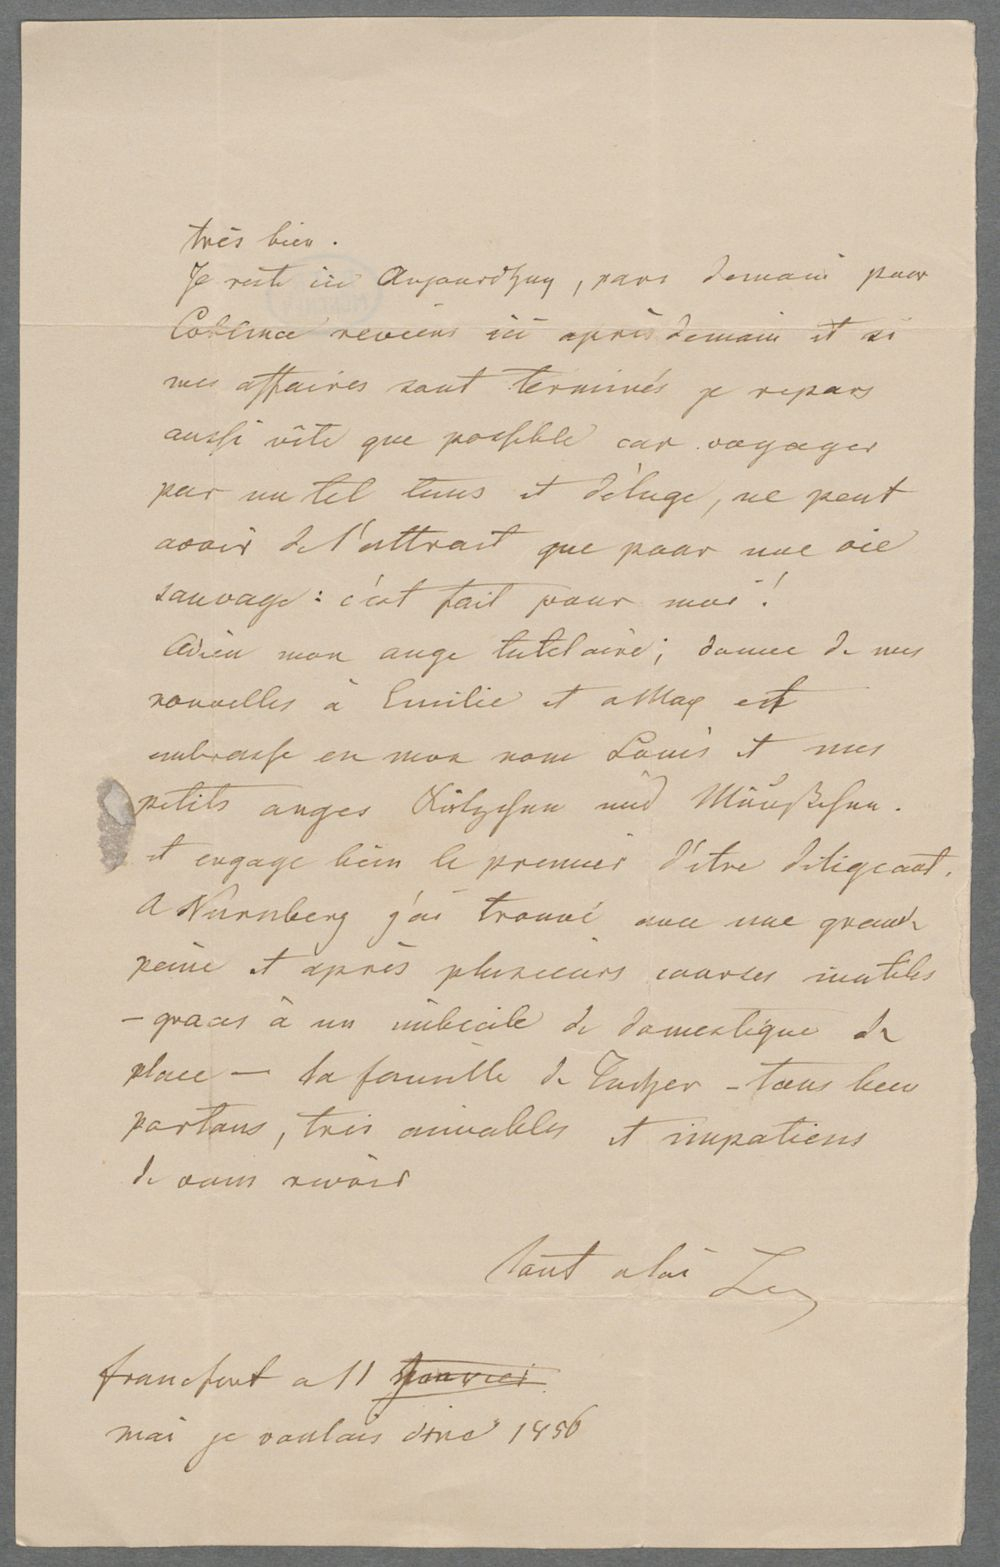 très bien.
Je reste ici Aujourdhuy, pars demain pour
Coblence reviens ici après demain et si
mes affaires sont terminés je repars
aussi vite que possible car voyager
par un tel tems et déluge, ne peut
avoir de l'attrait que pour une oie
sauvage: c'est fait pour moi!
Adieu mon ange tutelaire; donne de mes
nouvelles à Emilie et a Max et
embrasse en mon nom Louis et mes
petits anges und
et engage bien le premier d'etre diligeant.
A Nürnberg j'ai trouvé avec une grande
peine et après plusieurs courses inutiles
– graces à un imbecile de domestique de
place – la famille de Tucher – tous bien
portans, très aimables et impatiens
de vous revoir
tout a toi
francfort a 11 Janvier
mai je voulais dire 1856